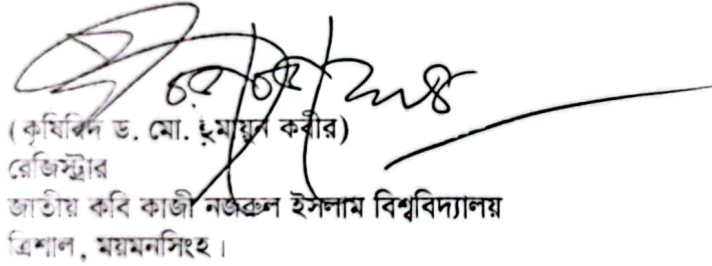 (কৃষিবিদ ড. মো. হুমায়ুন কবীর)
রেজিস্ট্রার
জাতীয় কবি কাজী নজরুল ইসলাম বিশ্ববিদ্যালয়
ত্রিশাল, ময়মনসিংহ।